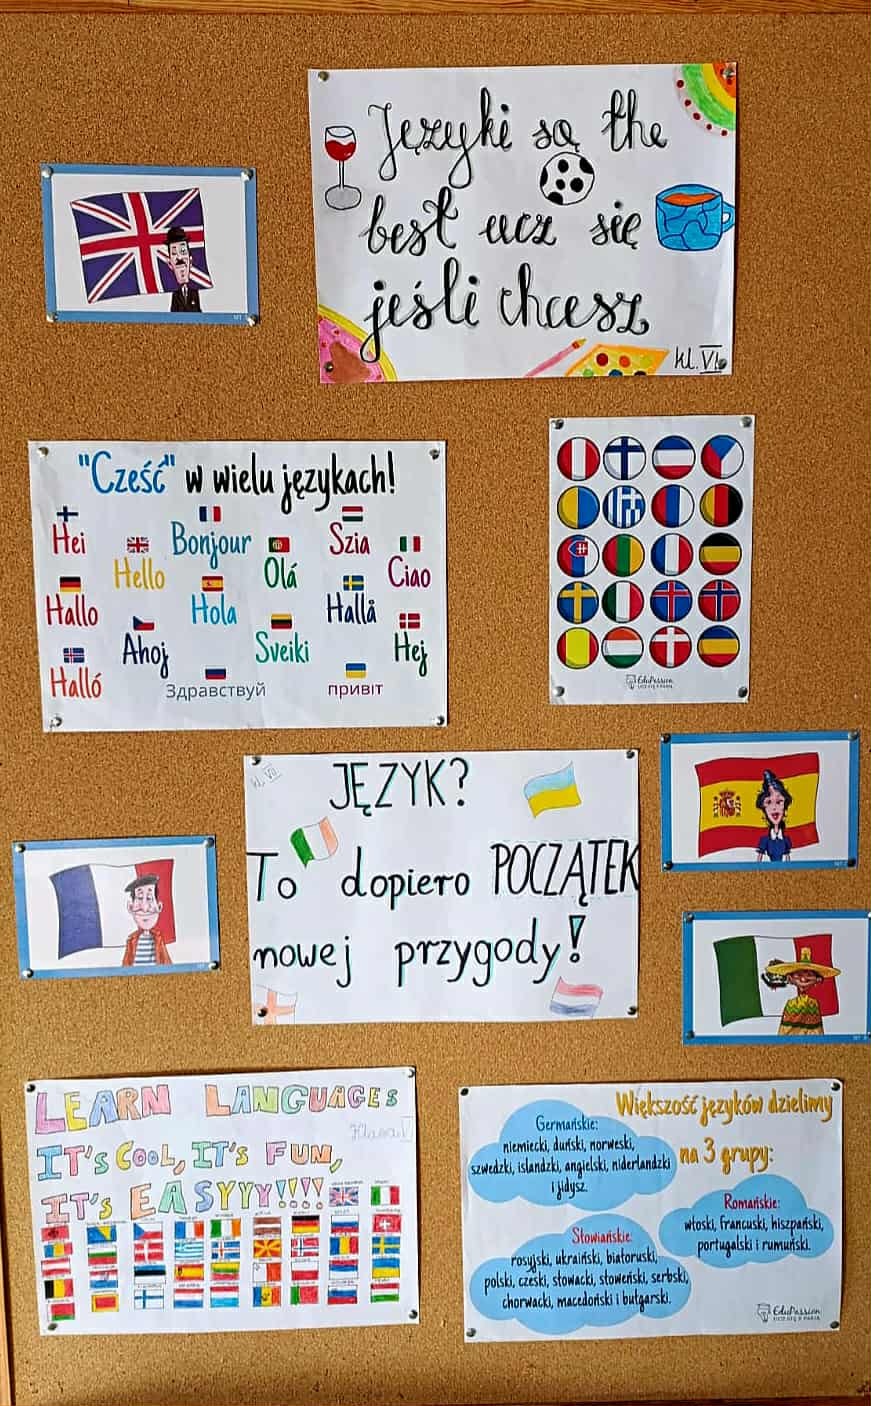 Języki są the
best ucz się
jeśli chcesz
kl. VI
"Cześć" w wielu językach!
Hei
Hello
Bonjour
Olá
Szia
Ciao
Hallo
Ahoj
Hola
Sveiki
Hallå
Hej
Halló
Здравствуй
привіт
EduPassion
kl. VII
JĘZYK?
To dopiero POCZĄTEK
nowej przygody!
LEARN LANGUAGES
Klasa V
IT'S COOL, IT'S FUN,
IT'S EASYYY!!!!
Większość języków dzielimy
na 3 grupy:
Germańskie:
niemiecki, duński, norweski,
szwedzki, islandzki, angielski, niderlandzki
i jidysz.
Romańskie:
włoski, francuski, hiszpański,
portugalski i rumuński.
Słowiańskie:
rosyjski, ukraiński, białoruski,
polski, czeski, słowacki, słoweński, serbski,
chorwacki, macedoński i bułgarski.
EduPassion
UCZĘ SIĘ Z PASJĄ